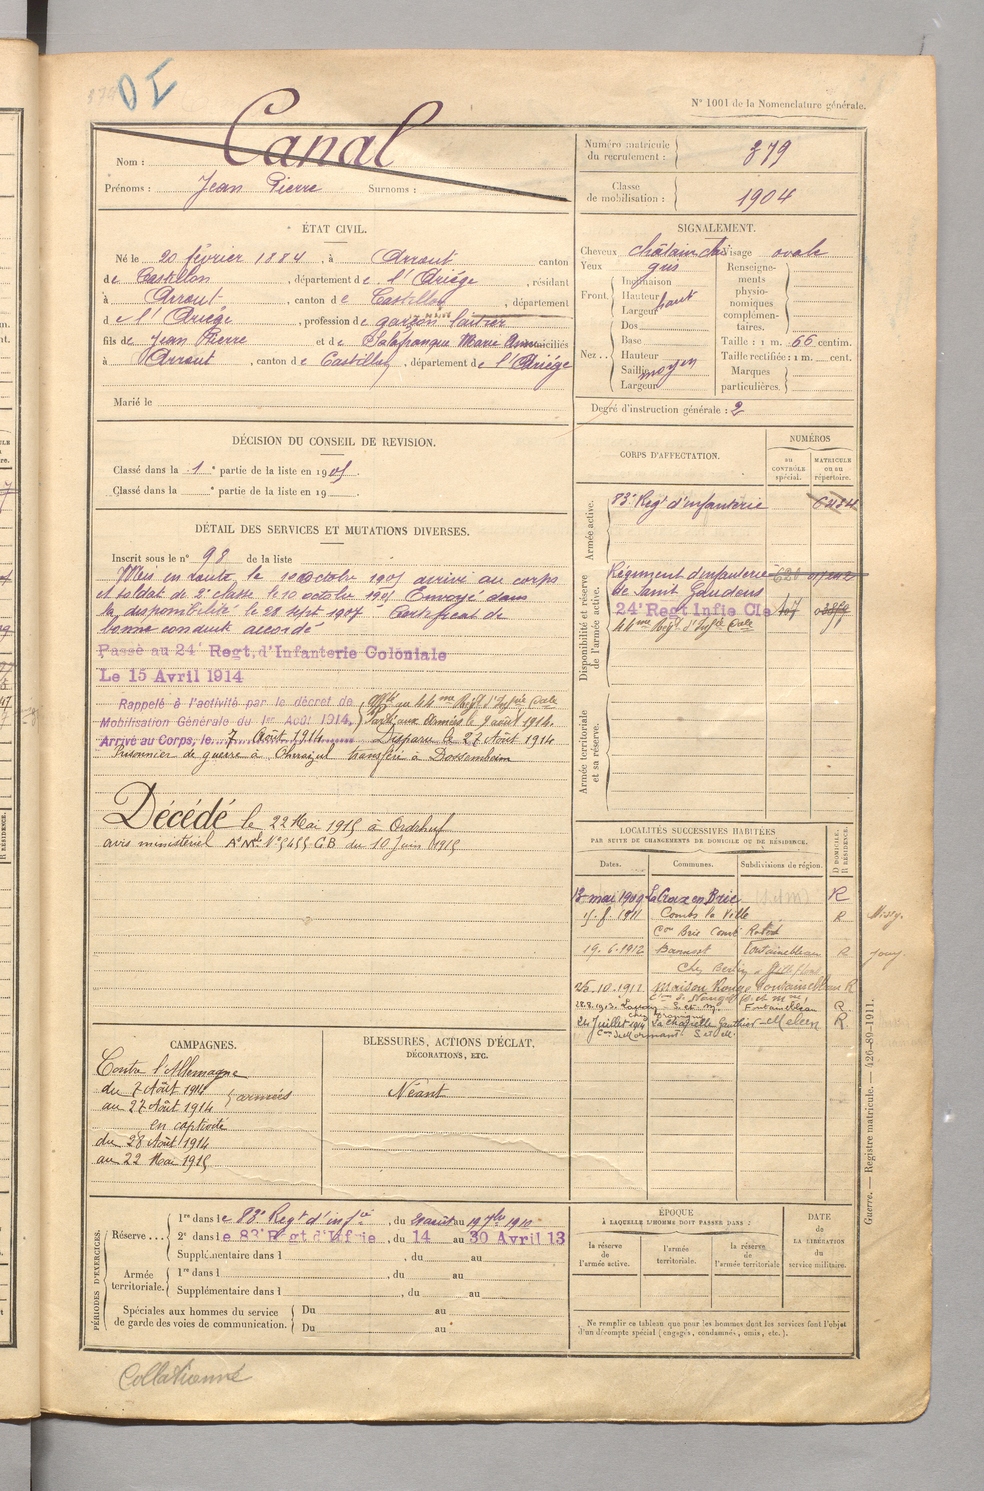 DI
N° 1001 de la Nomenclature générale.
Nom : Canal
Prénoms : Jean Pierre Surnoms :
Numéro matricule du recrutement : 379
Classe de mobilisation : 1904
ÉTAT CIVIL.
Né le 20 février 1884, à Arrout canton
de Castillon, département de l'Ariége, résidant
à Arrout, canton de Castillon, département
de l'Ariége, profession de garçon laitier
fils de Jean Pierre et de Salafranque Marie domiciliés
à Arrout, canton de Castillon, département de l'Ariége
Marié le
SIGNALEMENT.
Cheveux châtain Visage ovale
Yeux gris
Front. Inclinaison
Hauteur haut
Largeur
Nez... Dos
Base
Hauteur
Saillie moyen
Largeur
Renseignements physionomiques complémentaires.
Taille : 1 m. 66 centim.
Taille rectifiée : 1 m. cent.
Marques particulières.
Degré d'instruction générale : 2
DÉCISION DU CONSEIL DE REVISION.
Classé dans la 1e partie de la liste en 1905.
Classé dans la e partie de la liste en 19
DÉTAIL DES SERVICES ET MUTATIONS DIVERSES.
Inscrit sous le n° 98 de la liste
Mis en route le 10 Octobre 1905 arrivé au corps
et soldat de 2e classe le 10 octobre 1905 Envoyé dans
la disponibilité le 28 sept 1907 Certificat de
bonne conduite accordé
Passé au 24e Regt. d'Infanterie Coloniale
Le 15 Avril 1914
Rappelé à l'activité par le décret de
Mobilisation Générale du 1er Août 1914.
Arrivé au Corps, le 7 Août 1914
au 44me Régt d'Infie Cale
Parti aux Armées le 9 août 1914.
Disparu le 27 Août 1914
Prisonnier de guerre à transféré à
Décédé le 22 Mai 1915 à Ordruf
avis ministériel N° 5455 GB du 10 Juin 1915
CORPS D'AFFECTATION.
NUMÉROS
au CONTRÔLE spécial.
MATRICULE ou au répertoire.
Armée active.
83e Regt d'infanterie
Disponibilité et réserve de l'armée active.
Régiment d'infanterie
de Saint Gaudens
24e Regt Infie Cle 107
44me Régt d'Infie Cale
Armée territoriale et sa réserve.
LOCALITÉS SUCCESSIVES HABITÉES
PAR SUITE DE CHANGEMENTS DE DOMICILE OU DE RÉSIDENCE.
Dates. Communes. Subdivisions de région. D. DOMICILE. R. RÉSIDENCE.
13 mai 1909 La Croix en Brie R
1911 Combs la Ville R
Con Brie Comte Robert
19.6.1912 Fontainebleau R
26.10.1911 Maison Rouge Fontainebleau R
Con de Nangis S. et Mne
22.8.1913 Fontainebleau R
24 Juillet 1914 La Chapelle Gauthier Melun R
Con de Mormant S. et M.
CAMPAGNES.
Contre l'Allemagne
du 7 Août 1914
au 27 Août 1914 armées
en captivité
du 28 Août 1914
au 22 Mai 1915
BLESSURES, ACTIONS D'ÉCLAT,
DÉCORATIONS, ETC.
Néant
PÉRIODES D'EXERCICES.
Réserve... 1re dans le 83e Regt d'infie, du 24 août au 19 1910
2e dans le 83e Régt d'Infrie, du 14 au 30 Avril 13
Supplémentaire dans l , du au
Armée territoriale. 1re dans l , du au
Supplémentaire dans l , du au
Spéciales aux hommes du service de garde des voies de communication. Du au
Du au
ÉPOQUE
À LAQUELLE L'HOMME DOIT PASSER DANS :
la réserve de l'armée active.
l'armée territoriale.
la réserve de l'armée territoriale
DATE de LA LIBÉRATION du service militaire.
Ne remplir ce tableau que pour les hommes dont les services font l'objet
d'un décompte spécial (engagés, condamnés, omis, etc.).
Guerre. — Registre matricule. — 426-89-1911.
Collationné